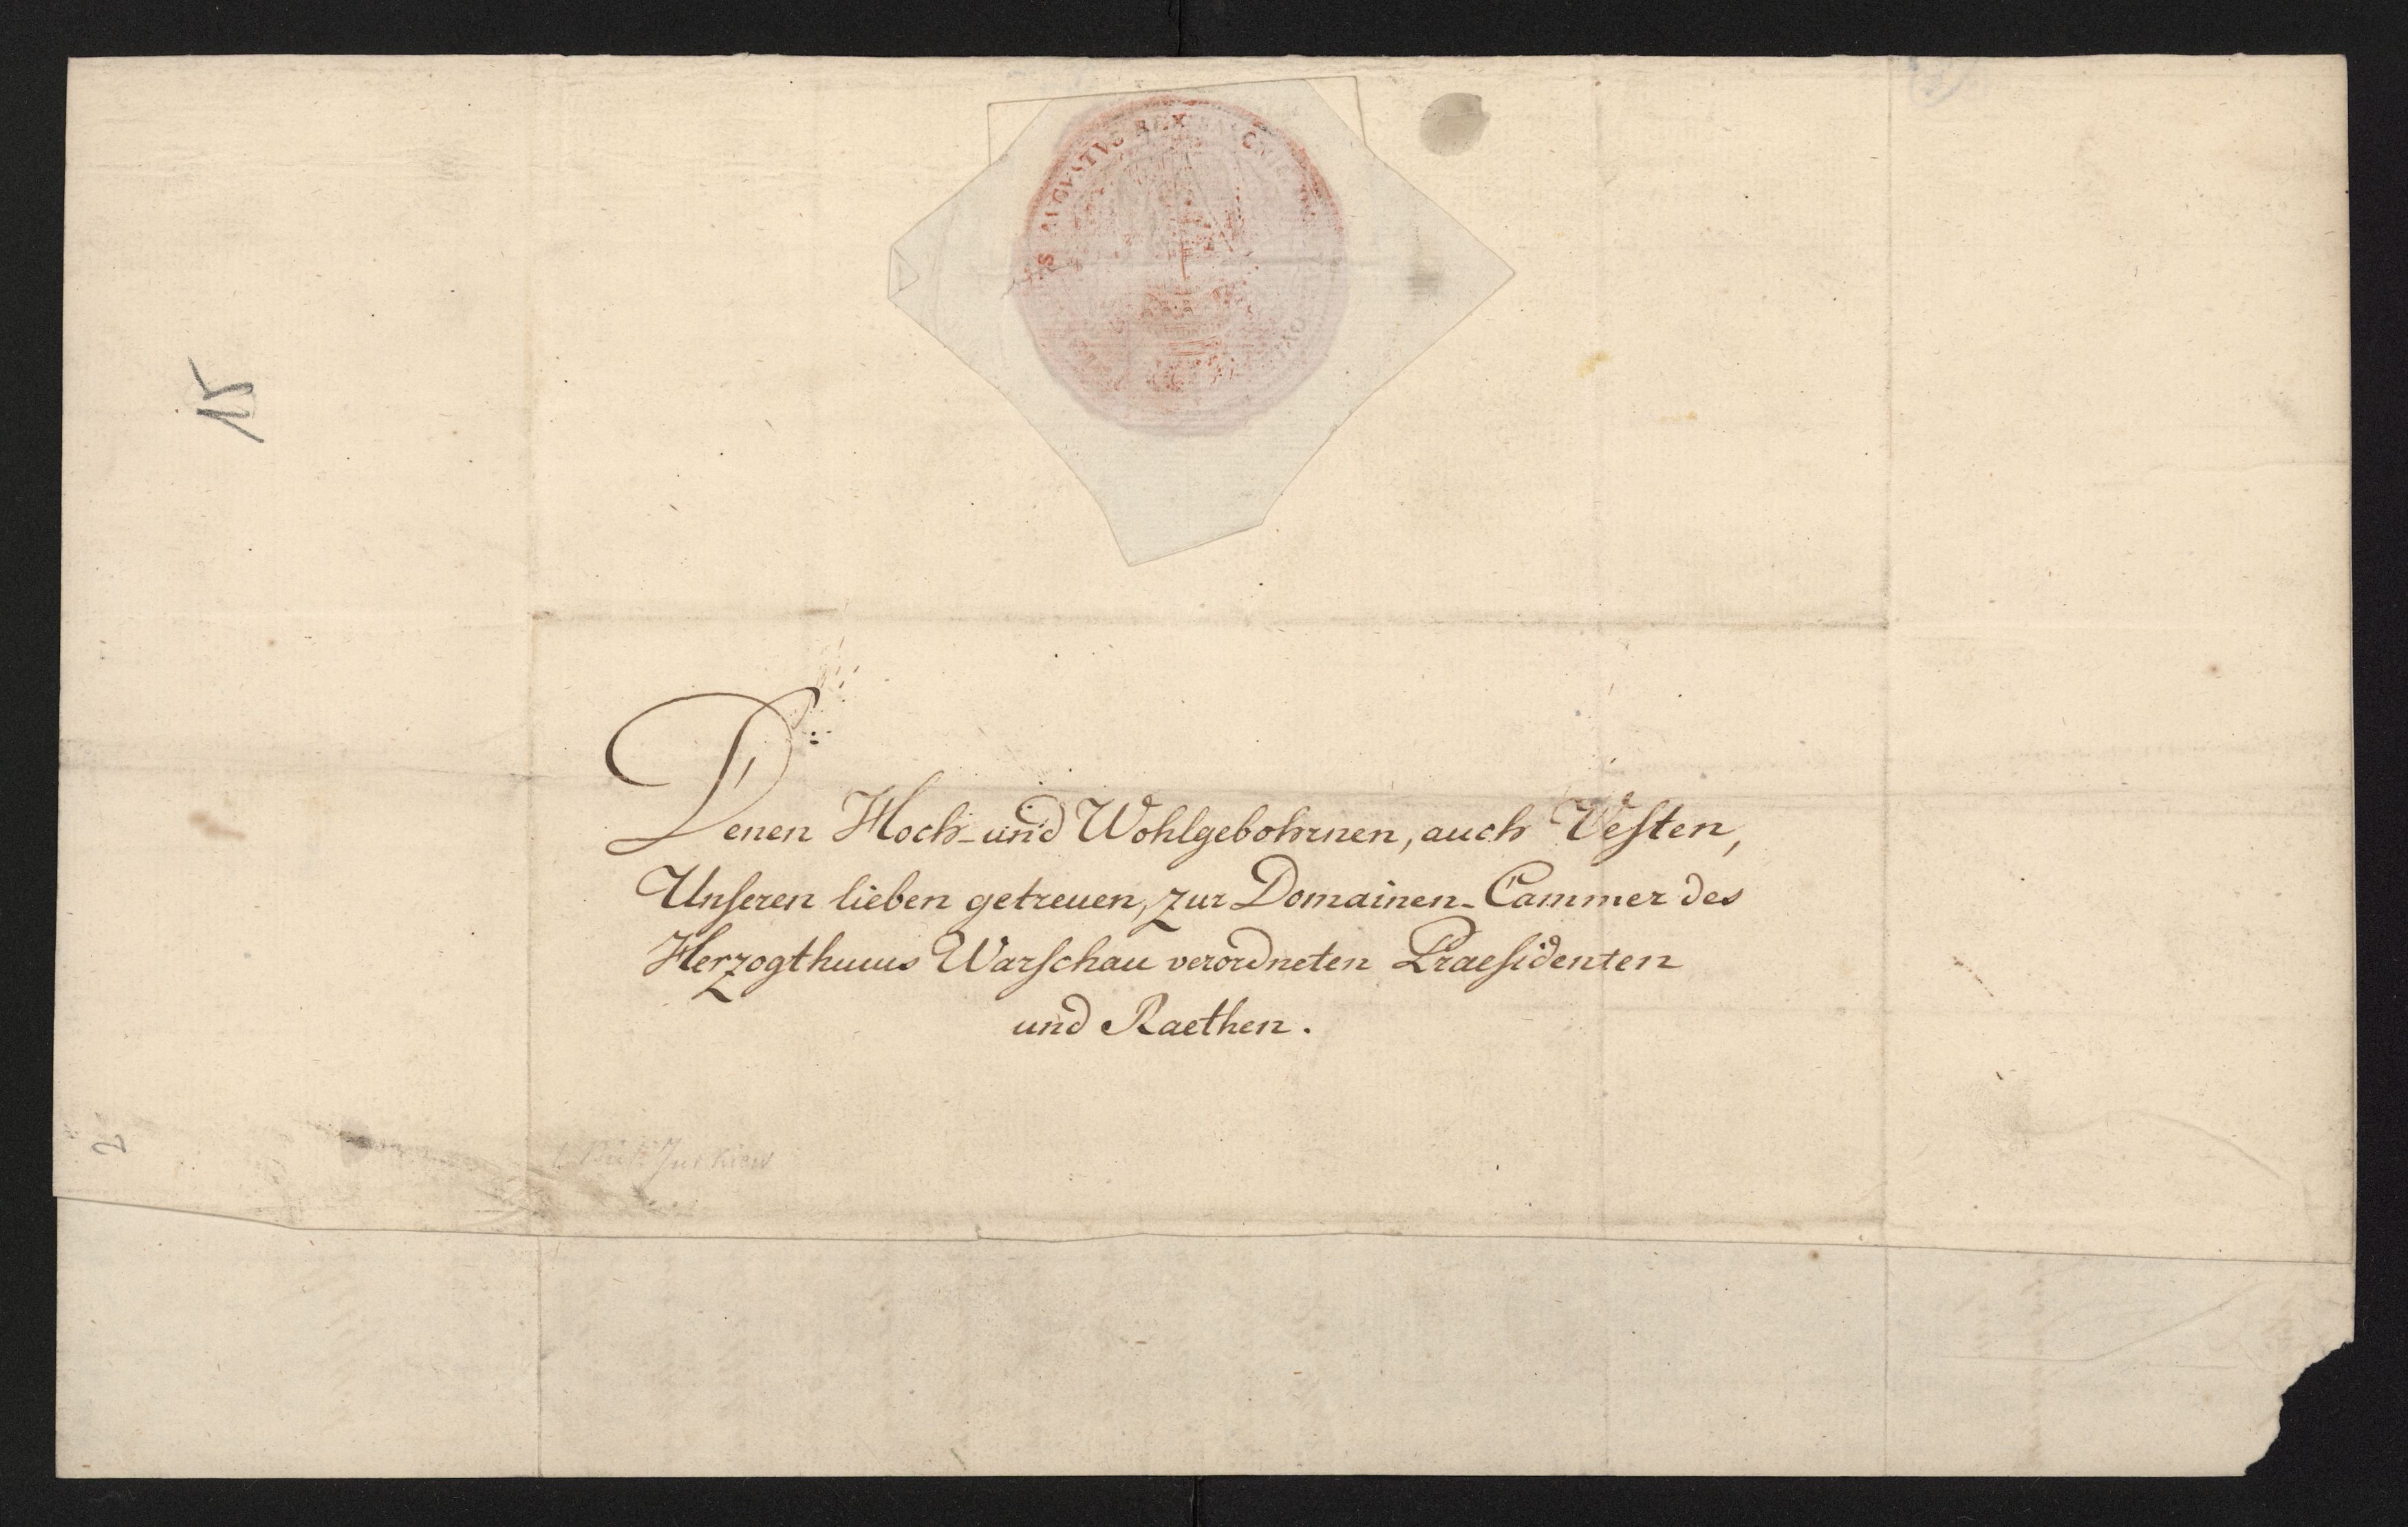 AUGVSTVS REX
15
Denen Hoch- und Wohlgebohrnen, auch Vesten,
Unseren lieben getreuen, zur Domainen-Cammer des
Herzogthums Warschau verordneten Praesidenten
und Raethen.
2